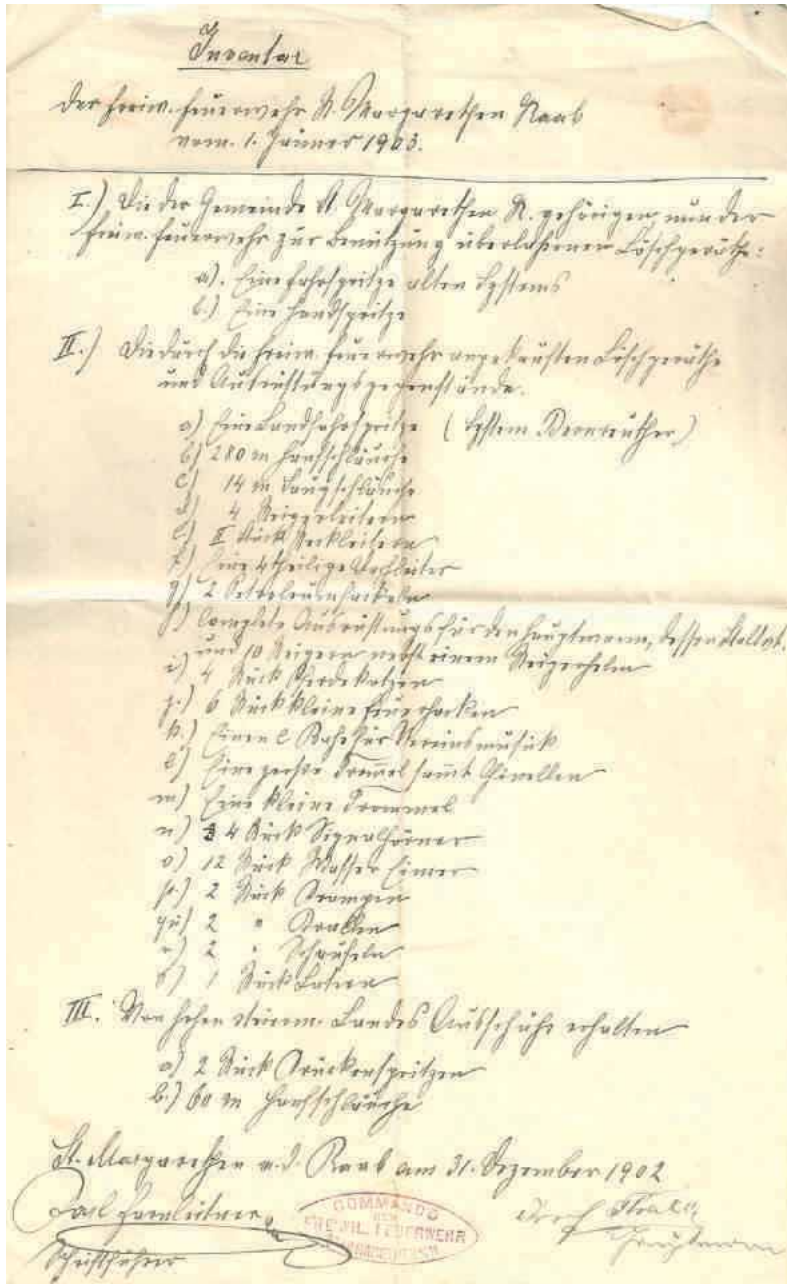 Inventar
der freiw. Feuerwehr St. Margarethen Raab
vom 1. Jänner 1903.
I.) Die der Gemeinde St. Margarethen R. gehörigen, nun der
freiw. Feuerwehr zur Benützung überlaßenen Löschgeräthe:
a). Eine Fahrspritze alten Systems
b.) Eine Handspritze
II.) Die durch die freiw. Feuerwehr angekauften Löschgeräthe
und Ausrüstungsgegenstände.
a) Eine Landfahrspritze (System Kernreuther)
b) 280 m Hanfschläuche
c) 14 m Saugschläuche
d) 4 Steigerleitern
e) II Stück Steckleitern
f) Eine 4theilige Dachleiter
g) 2 Petroleumfackeln
h) Complete Ausrüstungs für den Hauptmann, dessen Stellvt.
und 10 Steigern nebst einem Steigerhelm
i) 4 Stück Pferdekotzen
j.) 6 Stück kleine Feuerhacken
k.) Einen Baß für Vereinsmusik
l) Eine große Trommel sammt Chinellen
m) Eine kleine Trommel
n) 4 Stück Signalhörner
o) 12 Stück Wasser Eimer
p.) 2 Stück Krampen
qu) 2 " Krallen
r) 2 " Schaufeln
s) 1 Stück Latern
III. Von hohen steierm. Landes Ausschuße erhalten
a) 2 Stück Krückenspritzen
b.) 60 m Hanfschläuche
St. Margarethen a.d. Raab am 31. Dezember 1902
Schriftführer
Hauptmann
COMMANDO
DER
FREIWIL. FEUERWEHR